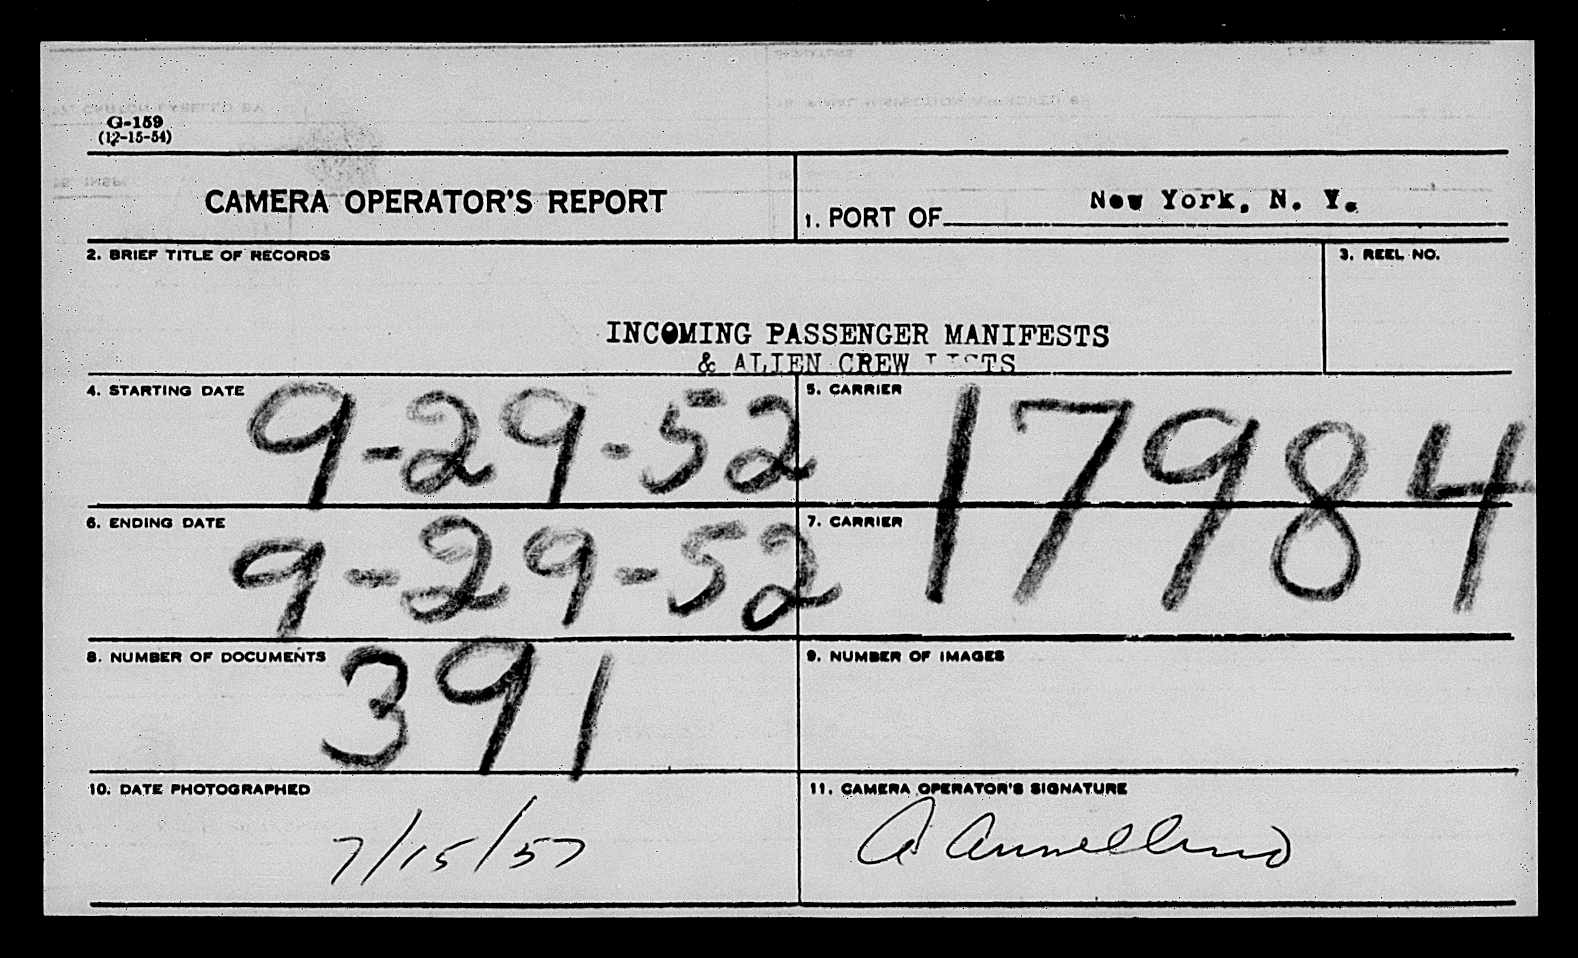 G-159
(12-15-54)
CAMERA OPERATOR'S REPORT
1. PORT OF New York, N. Y.
2. BRIEF TITLE OF RECORDS
3. REEL NO.
INCOMING PASSENGER MANIFESTS
& ALIEN CREW LISTS
4. STARTING DATE 9-29-52
5. CARRIER
17984
6. ENDING DATE 9-29-52
7. CARRIER
8. NUMBER OF DOCUMENTS 391
9. NUMBER OF IMAGES
10. DATE PHOTOGRAPHED
7/15/57
11. CAMERA OPERATOR'S SIGNATURE
A